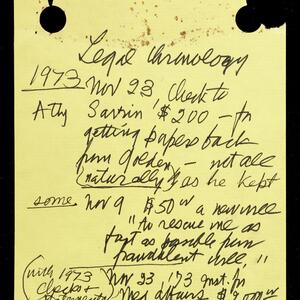 Legal Chronology
1973 Nov 23, check to
Atty Savrin $200 - for
getting papers back
from Golden, - not all
(naturally") as he kept
some, Nov 9 $50 on a new will
"to rescue me as
fast as possible from
fraudulent will,"
(with 1973 Nov 23, '73 inst. for
checks +
statements)